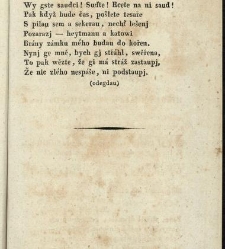 Wy gste saudci! Suďte! Rcete na ni saud!
Pak když bude čas, pošlete tesaře
S pilau sem a sekerau, nechť lešenj
Pozarazj — heytmanu a katowi
Brány zámku mého budau do kořen.
Nynj ge mně, bych gj stráhl, swěřena,
To pak wězte, že gi má stráž zastaupj,
Že nic zlého nespáše, ni podstaupj.
(odegdau)